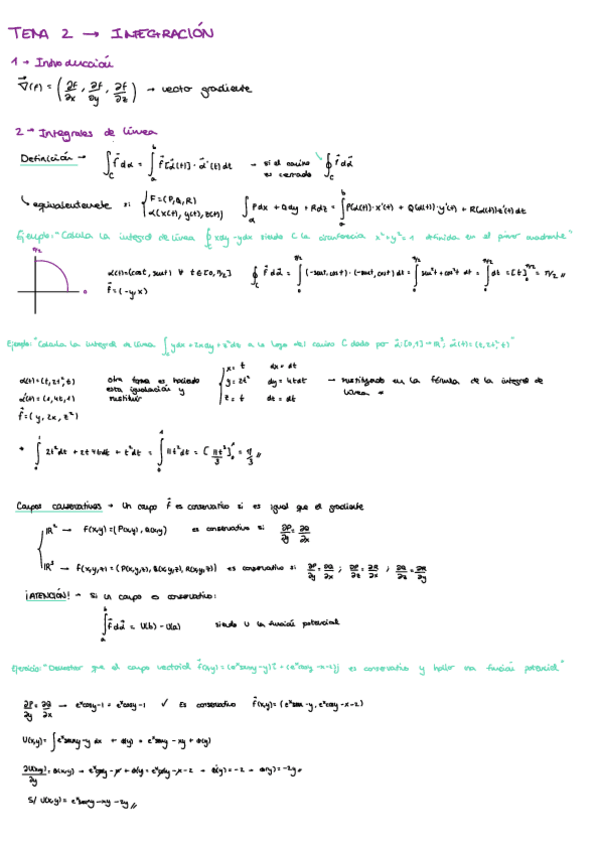 TEMA 2 → INTEGRACIÓN
1 → Introducción
∇(f) = (∂f/∂x, ∂f/∂y, ∂f/∂z) → vector gradiente
2 → Integrales de línea
Definición → ∫_C f dα = ∫_a^b f[α(t)] · α'(t) dt → si el camino es cerrado ∮_C f dα
equivalentemente si { F = (P,Q,R) α(x(t), y(t), z(t)) ∫_a Pdx + Qdy + Rdz = ∫_a^b P(α(t))·x'(t) + Q(α(t))·y'(t) + R(α(t))z'(t) dt
Ejemplo: "Calcula la integral de línea ∮ xdy - ydx siendo C la circunferencia x²+y²=1 definida en el primer cuadrante"
π/2
0
α(t) = (cost, sent) ∀ t ∈ [0, π/2] ∮_C f dα = ∫_0^{π/2} (-sent, cost) · (-sent, cost) dt = ∫_0^{π/2} sen²t + cos²t dt = ∫_0^{π/2} dt = [t]_0^{π/2} = π/2 //
f = (-y, x)
Ejemplo: "Calcula la integral de línea ∫_C ydx + 2xdy + z²dz a lo largo del camino C dado por α: [0,1] → ℝ³, α(t) = (t, 2t², t)"
α(t) = (t, 2t², t) otra forma es haciendo esta igualación y sustituir { x = t dx = dt
α'(t) = (1, 4t, 1) y = 2t² dy = 4t dt → sustituyendo en la fórmula de la integral de línea *
f = (y, 2x, z²) z = t dz = dt
* ∫_0^1 2t²dt + 2t 4t dt + t²dt = ∫_0^1 11t²dt = [11t³/3]_0^1
Campos conservativos → Un campo F es conservativo si es igual que el gradiente
ℝ² → f(x,y) = (P(x,y), Q(x,y)) es conservativo si ∂P/∂y = ∂Q/∂x
ℝ³ → f(x,y,z) = (P(x,y,z), Q(x,y,z), R(x,y,z)) es conservativo si ∂P/∂y = ∂Q/∂x ; ∂P/∂z = ∂R/∂x ; ∂Q/∂z = ∂R/∂y
¡ATENCIÓN! → Si un campo es conservativo:
∫_a^b f dα = U(b) - U(a) siendo U la función potencial
Ejercicio: "Demostrar que el campo vectorial f(x,y) = (eˣseny - y)i + (eˣcosy - x - 2)j es conservativo y hallar su función potencial"
∂P/∂y = ∂Q/∂x → eˣcosy - 1 = eˣcosy - 1 ✓ Es conservativo f(x,y) = (eˣseny - y, eˣcosy - x - 2)
U(x,y) = ∫ eˣseny - y dx + φ(y) = eˣseny - xy + φ(y)
∂U(x,y)/∂y = Q(x,y) → eˣcosy - x + φ'(y) = eˣcosy - x - 2 → φ'(y) = -2 → φ(y) = -2y
S/ U(x,y) = eˣseny - xy - 2y //